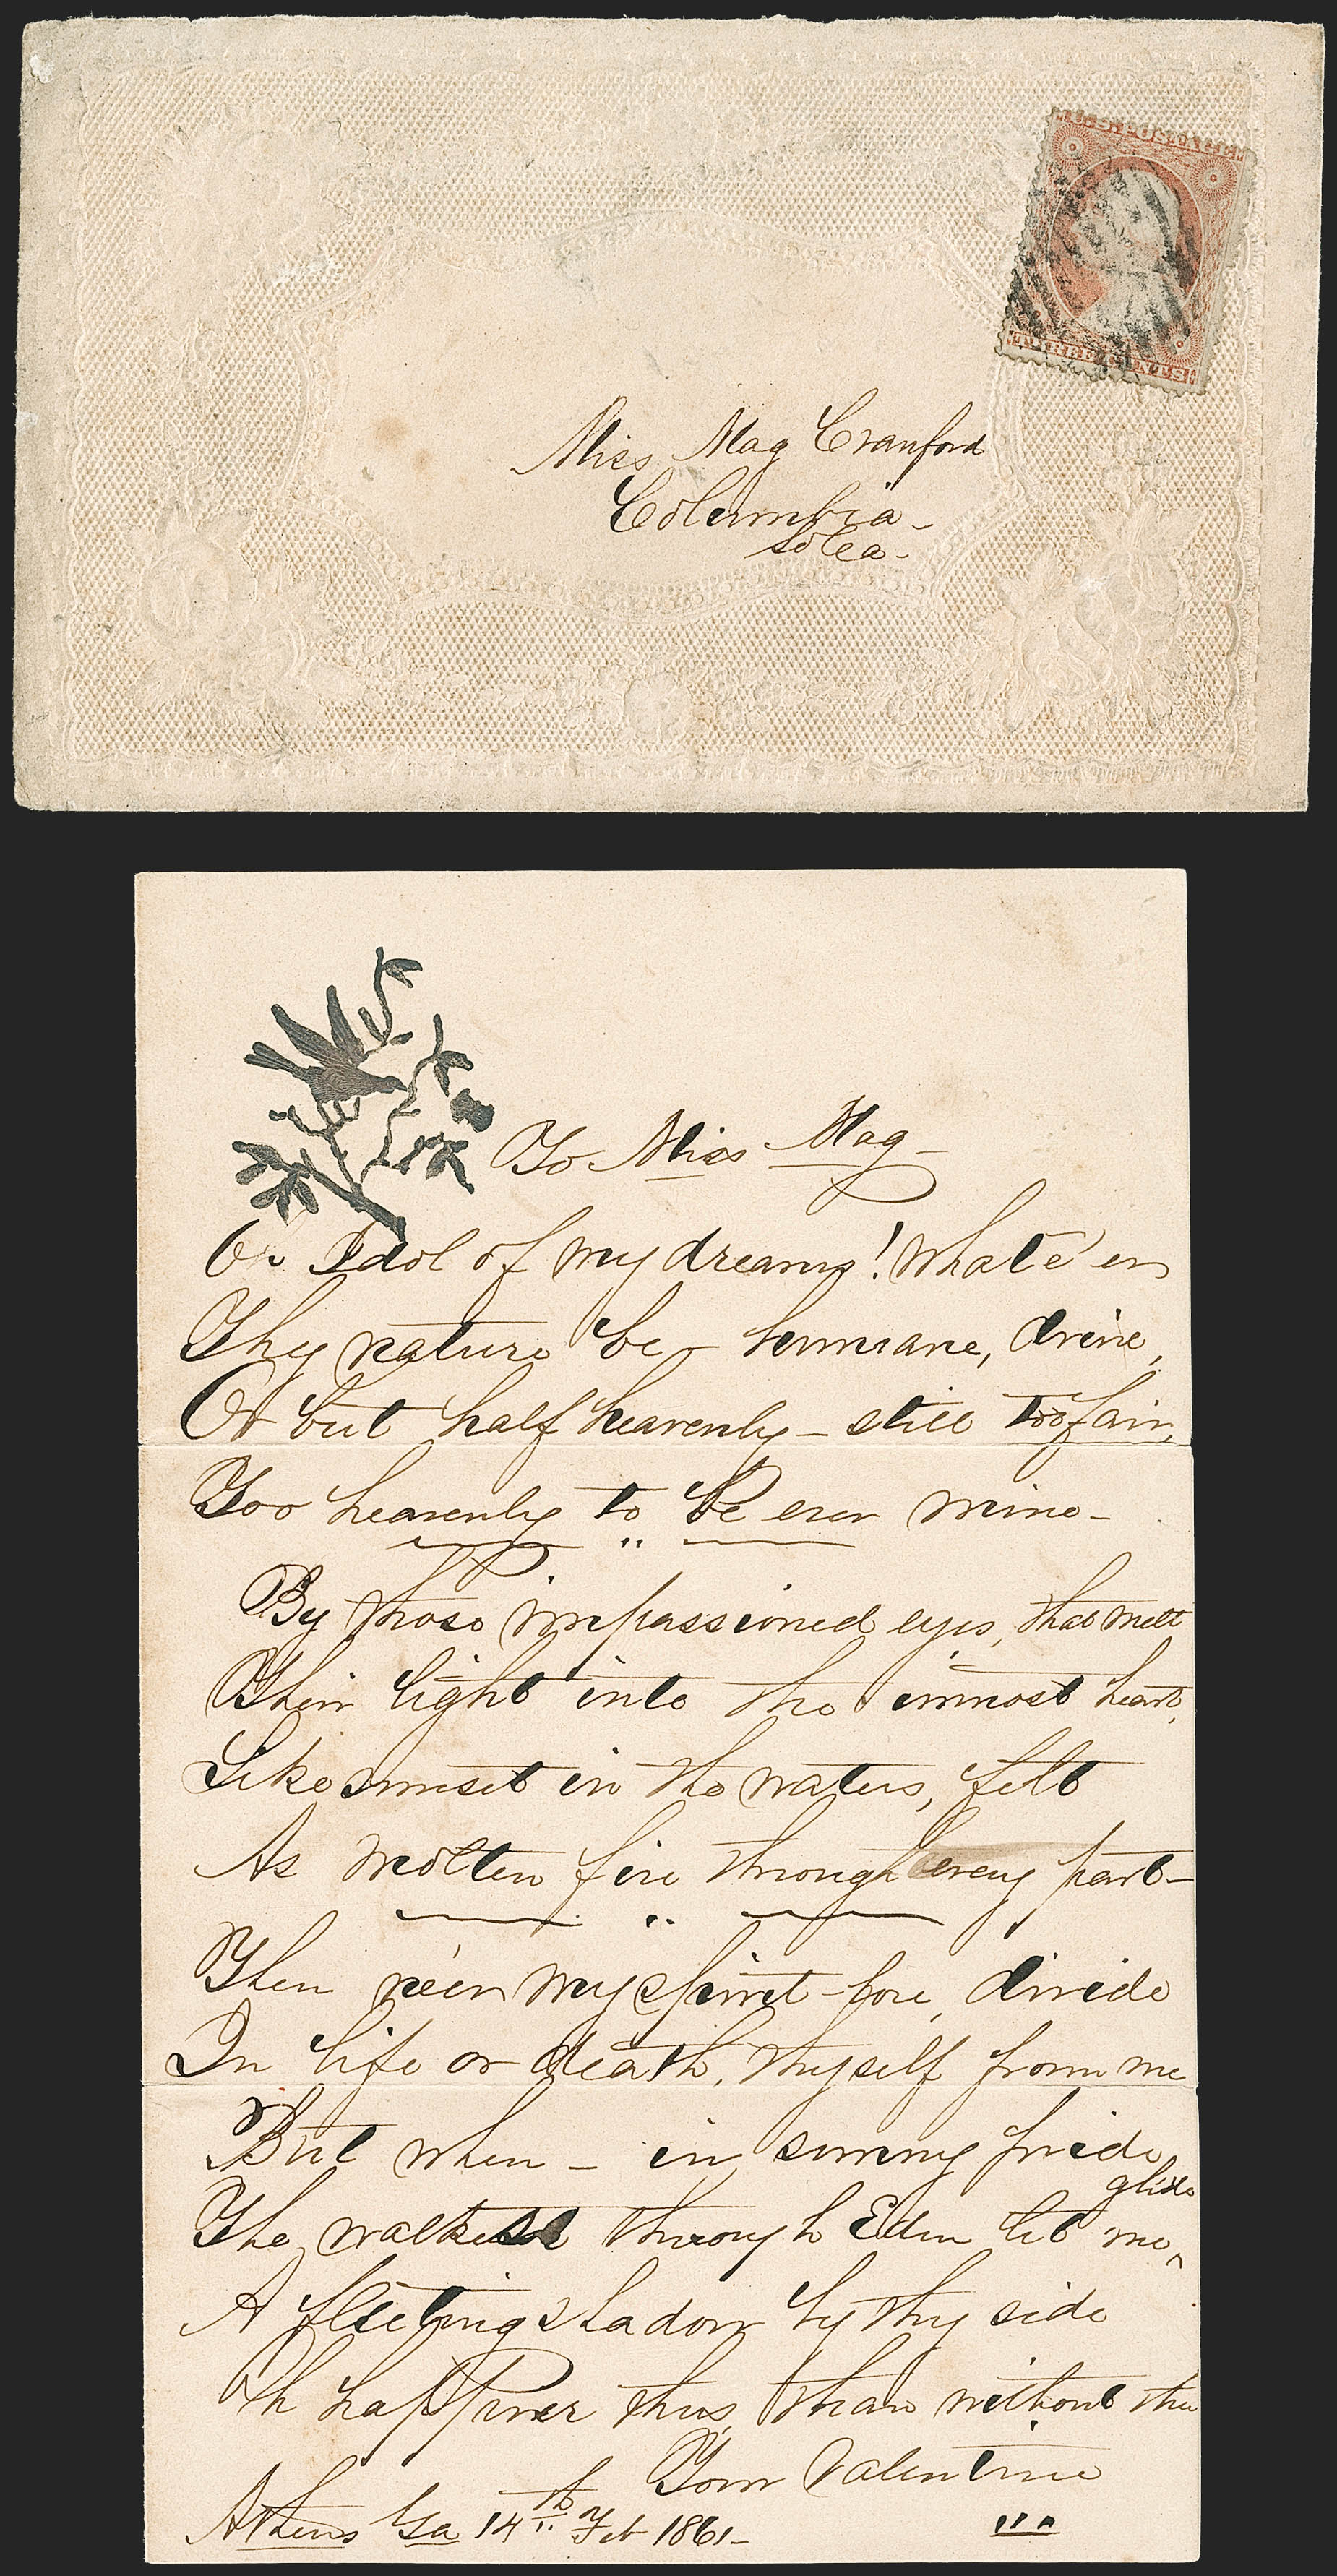 U.S. POSTAGE
THREE CENTS
Miss Mag Cranford
Columbia -
So Ca -
To Miss Mag -
Oh Idol of my dreams! Whate'er
Thy nature be - humane, divine,
Or but half heavenly - still too fair,
Too heavenly to be ever mine -
By those impassioned eyes, that melt
Their light into the inmost heart,
Like sunset in the waters, felt
As molten fire through every part -
Then ne'er my spirit-love, divide
In life or death, thyself from me
But when - in sunny pride
glide
Tho walkest through Eden let me ^
A fleeting shadow by thy side
Oh happier thus than without thee
Your Valentine
Athens Ga 14th Feb 1861 -